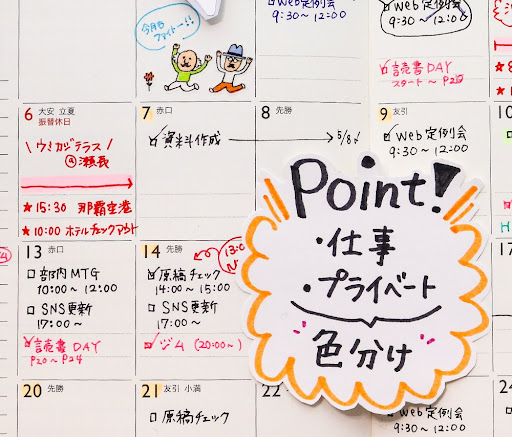 今月も
ファイトー!!
Web定例会
9:30〜12:00
Web定例会
9:30〜12:00
読書DAY
スタート〜P20
6 大安 立夏
振替休日
\ウミカジテラス/
@瀬長
★15:30 那覇空港
★10:00 ホテルチェックアウト
7 赤口
資料作成
8 先勝
5/8
9 友引
Web定例会
9:30〜12:00
10
Point!
・仕事
・プライベート
色分け
13 赤口
部内MTG
10:00〜12:00
SNS更新
17:00〜
読書DAY
P20〜P24
14 先勝
原稿チェック
14:00〜15:00
SNS更新
17:00〜
ジム (20:00〜)
17
20 先勝
21 友引 小満
原稿チェック
22
Web定例会
9:30〜12:00